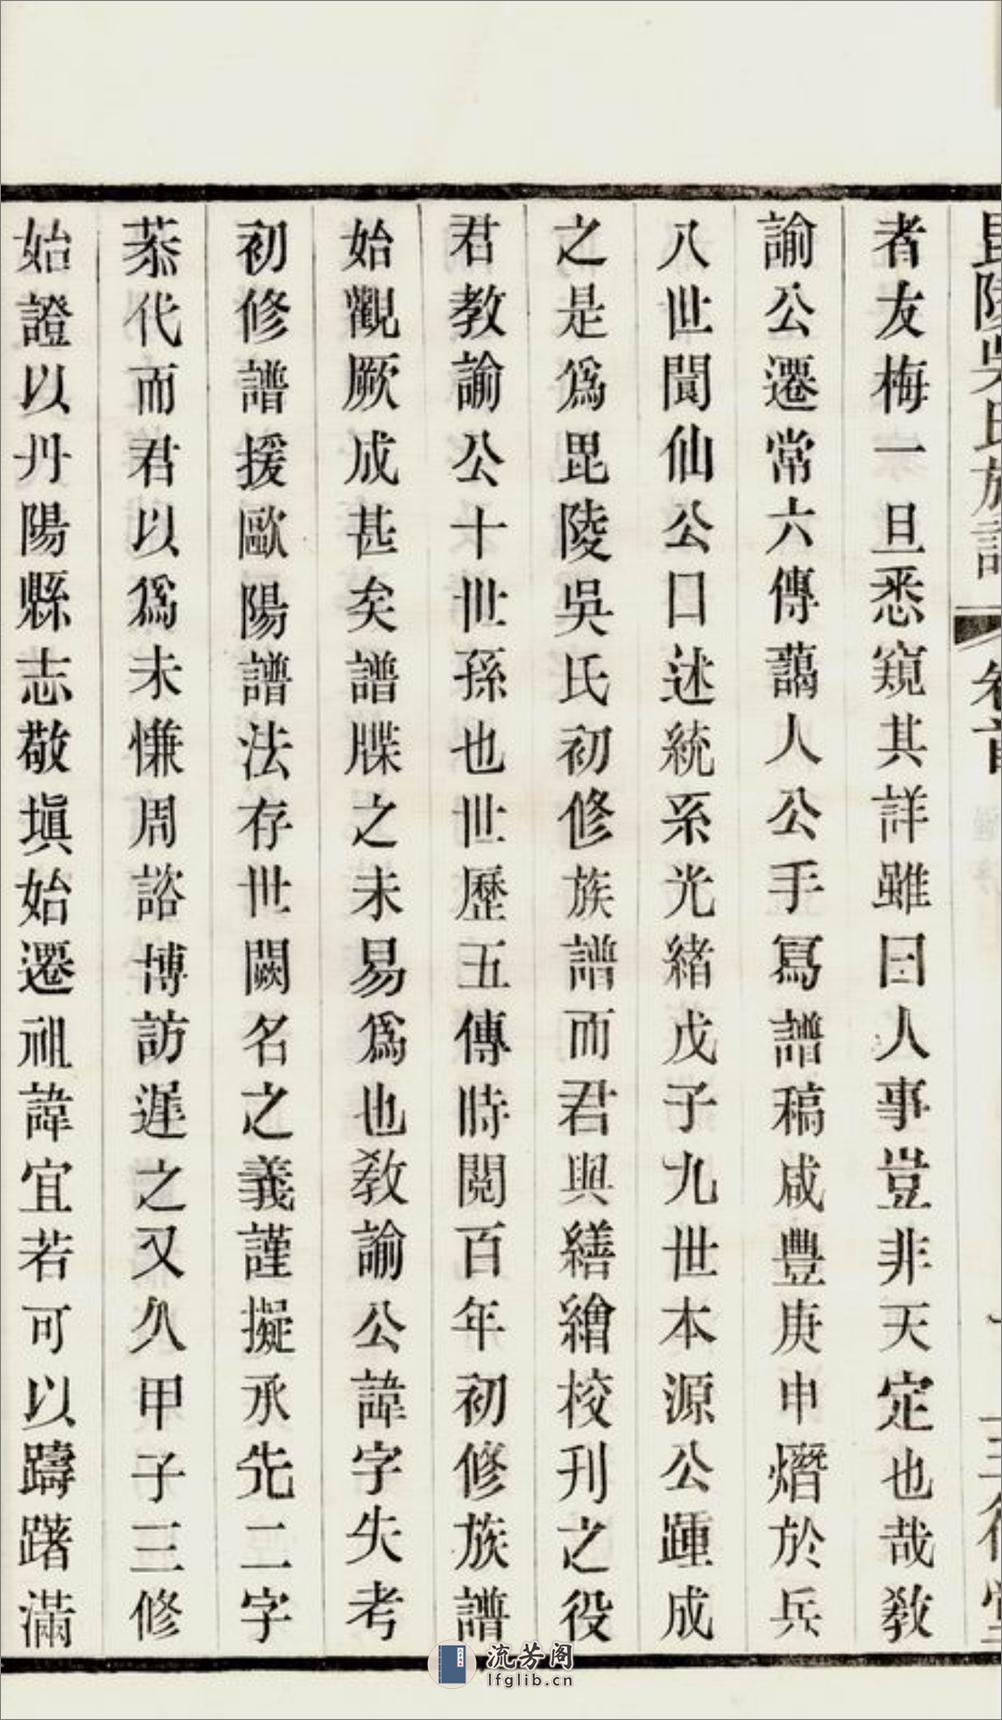 毘陵吳氏族譜 卷首 三行堂
者友梅一旦悉窺其詳雖曰人事豈非天定也哉敎
諭公遷常六傳藹人公手寫譜稿咸豐庚申熸於兵
八世閬仙公口述統系光緒戊子九世本源公踵成
之是爲毘陵吳氏初修族譜而君與繕繪校刊之役
君教諭公十世孫也世歷五傳時閱百年初修族譜
始觀厥成甚矣譜牒之未易爲也敎諭公諱字失考
初修譜援歐陽譜法存世闕名之義謹擬承先二字
恭代而君以爲未慊周諮博訪遲之又久甲子三修
始證以丹陽縣志敬塡始遷祖諱宜若可以躊躇滿
流芳阁
lfglib.cn